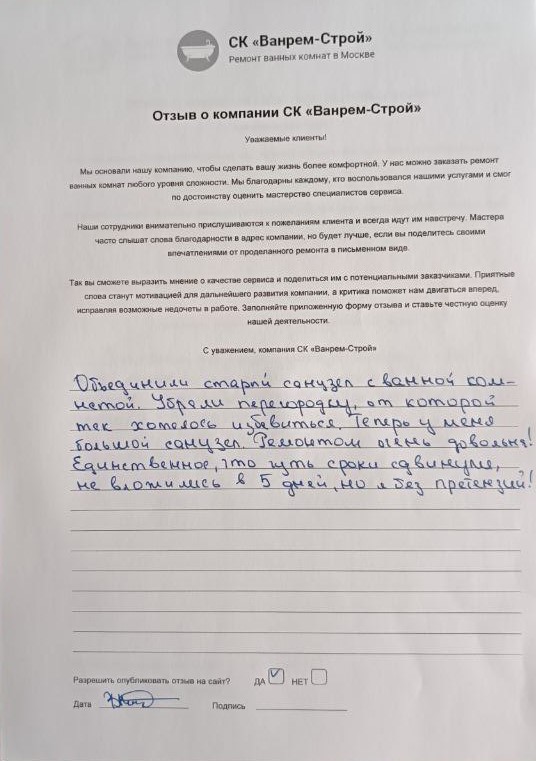 СК «Ванрем-Строй»
Ремонт ванных комнат в Москве
Отзыв о компании СК «Ванрем-Строй»
Уважаемые клиенты!
Мы основали нашу компанию, чтобы сделать вашу жизнь более комфортной. У нас можно заказать ремонт
ванных комнат любого уровня сложности. Мы благодарны каждому, кто воспользовался нашими услугами и смог
по достоинству оценить мастерство специалистов сервиса.
Наши сотрудники внимательно прислушиваются к пожеланиям клиента и всегда идут им навстречу. Мастера
часто слышат слова благодарности в адрес компании, но будет лучше, если вы поделитесь своими
впечатлениями от проделанного ремонта в письменном виде.
Так вы сможете выразить мнение о качестве сервиса и поделиться им с потенциальными заказчиками. Приятные
слова станут мотивацией для дальнейшего развития компании, а критика поможет нам двигаться вперед,
исправляя возможные недочеты в работе. Заполняйте приложенную форму отзыва и ставьте честную оценку
нашей деятельности.
С уважением, компания СК «Ванрем-Строй»
Объединили старый санузел с ванной ком-
натой. Убрали перегородку, от которой
так хотелось избавиться. Теперь у меня
большой санузел. Ремонтом очень довольна!
Единственное, что чуть сроки сдвинули,
не вложились в 5 дней, но я без претензий!
Разрешить опубликовать отзыв на сайт? ДА НЕТ
Дата Подпись